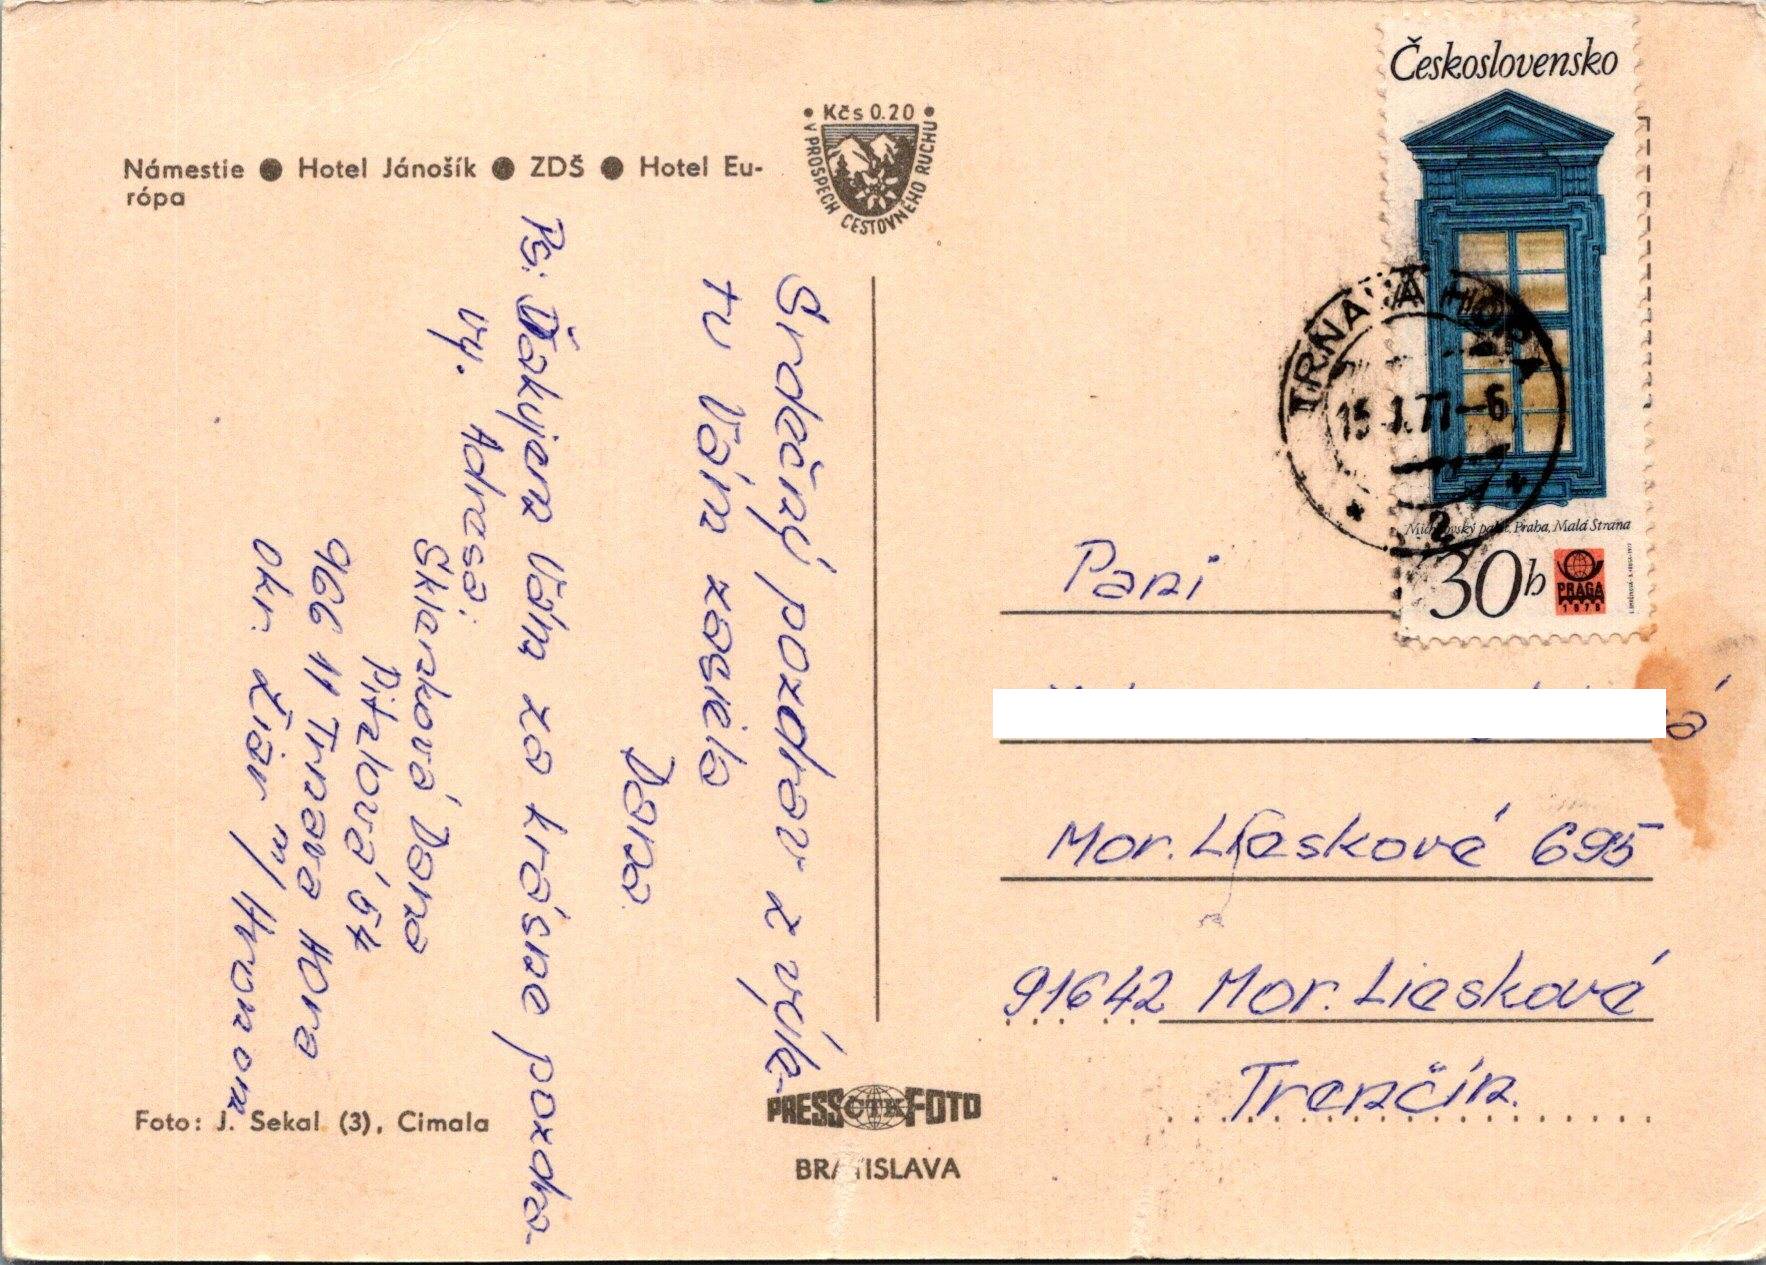 Námestie ● Hotel Jánošík ● ZDŠ ● Hotel Eu-
rópa
• Kčs 0.20 •
V PROSPECH CESTOVNÉHO RUCHU
Srdečný pozdrav z výle-
tu Vám zasiela
Dana.
Ps: Ďakujem Vám za krásne pozdra-
vy. Adresa:
Šklenková Dana
Pitelová 54
966 11 Trnava Hora
okr. Žiar n/Hronom
Foto: J. Sekal (3), Cimala
PRESS ČTK FOTO
BRATISLAVA
Československo
TRNAVÁ HORA
15.1.77-6
2
Michnovský palác, Praha, Malá Strana
30h
PRAGA
1978
Pani
Mor. Lieskové 695
91642 Mor. Lieskové
Trenčín.